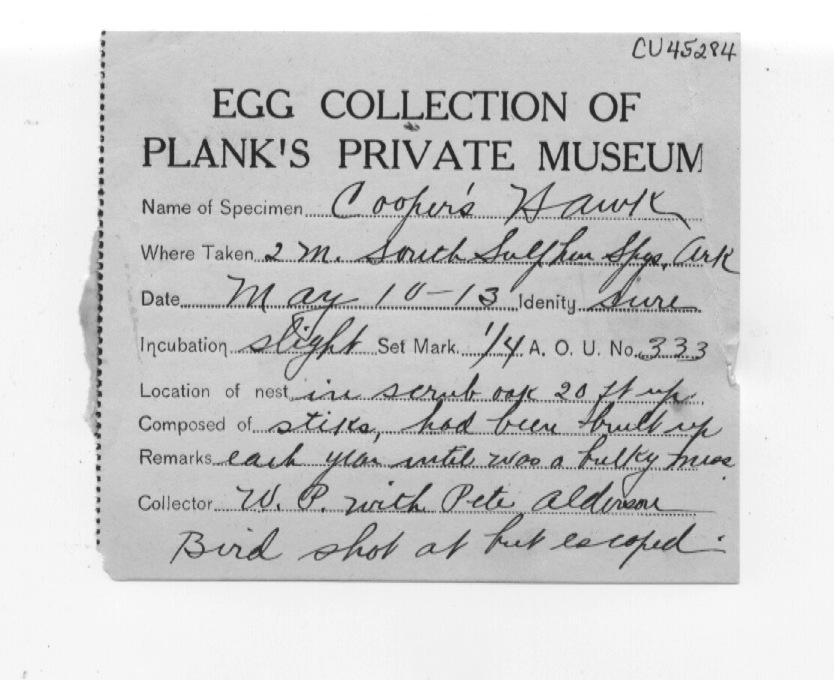 CU45284
EGG COLLECTION OF
PLANK'S PRIVATE MUSEUM
Name of Specimen Cooper's Hawk
Where Taken 2 M. South Sulphur Spgs. Ark
Date May 10-13 Idenity sure
Incubation slight Set Mark 1/4 A. O. U. No. 333
Location of nest in scrub oak 20 ft up.
Composed of stiks, had been built up
Remarks each year until was a bulky mass
Collector W. P. with Pete Alderson
Bird shot at but escoped.